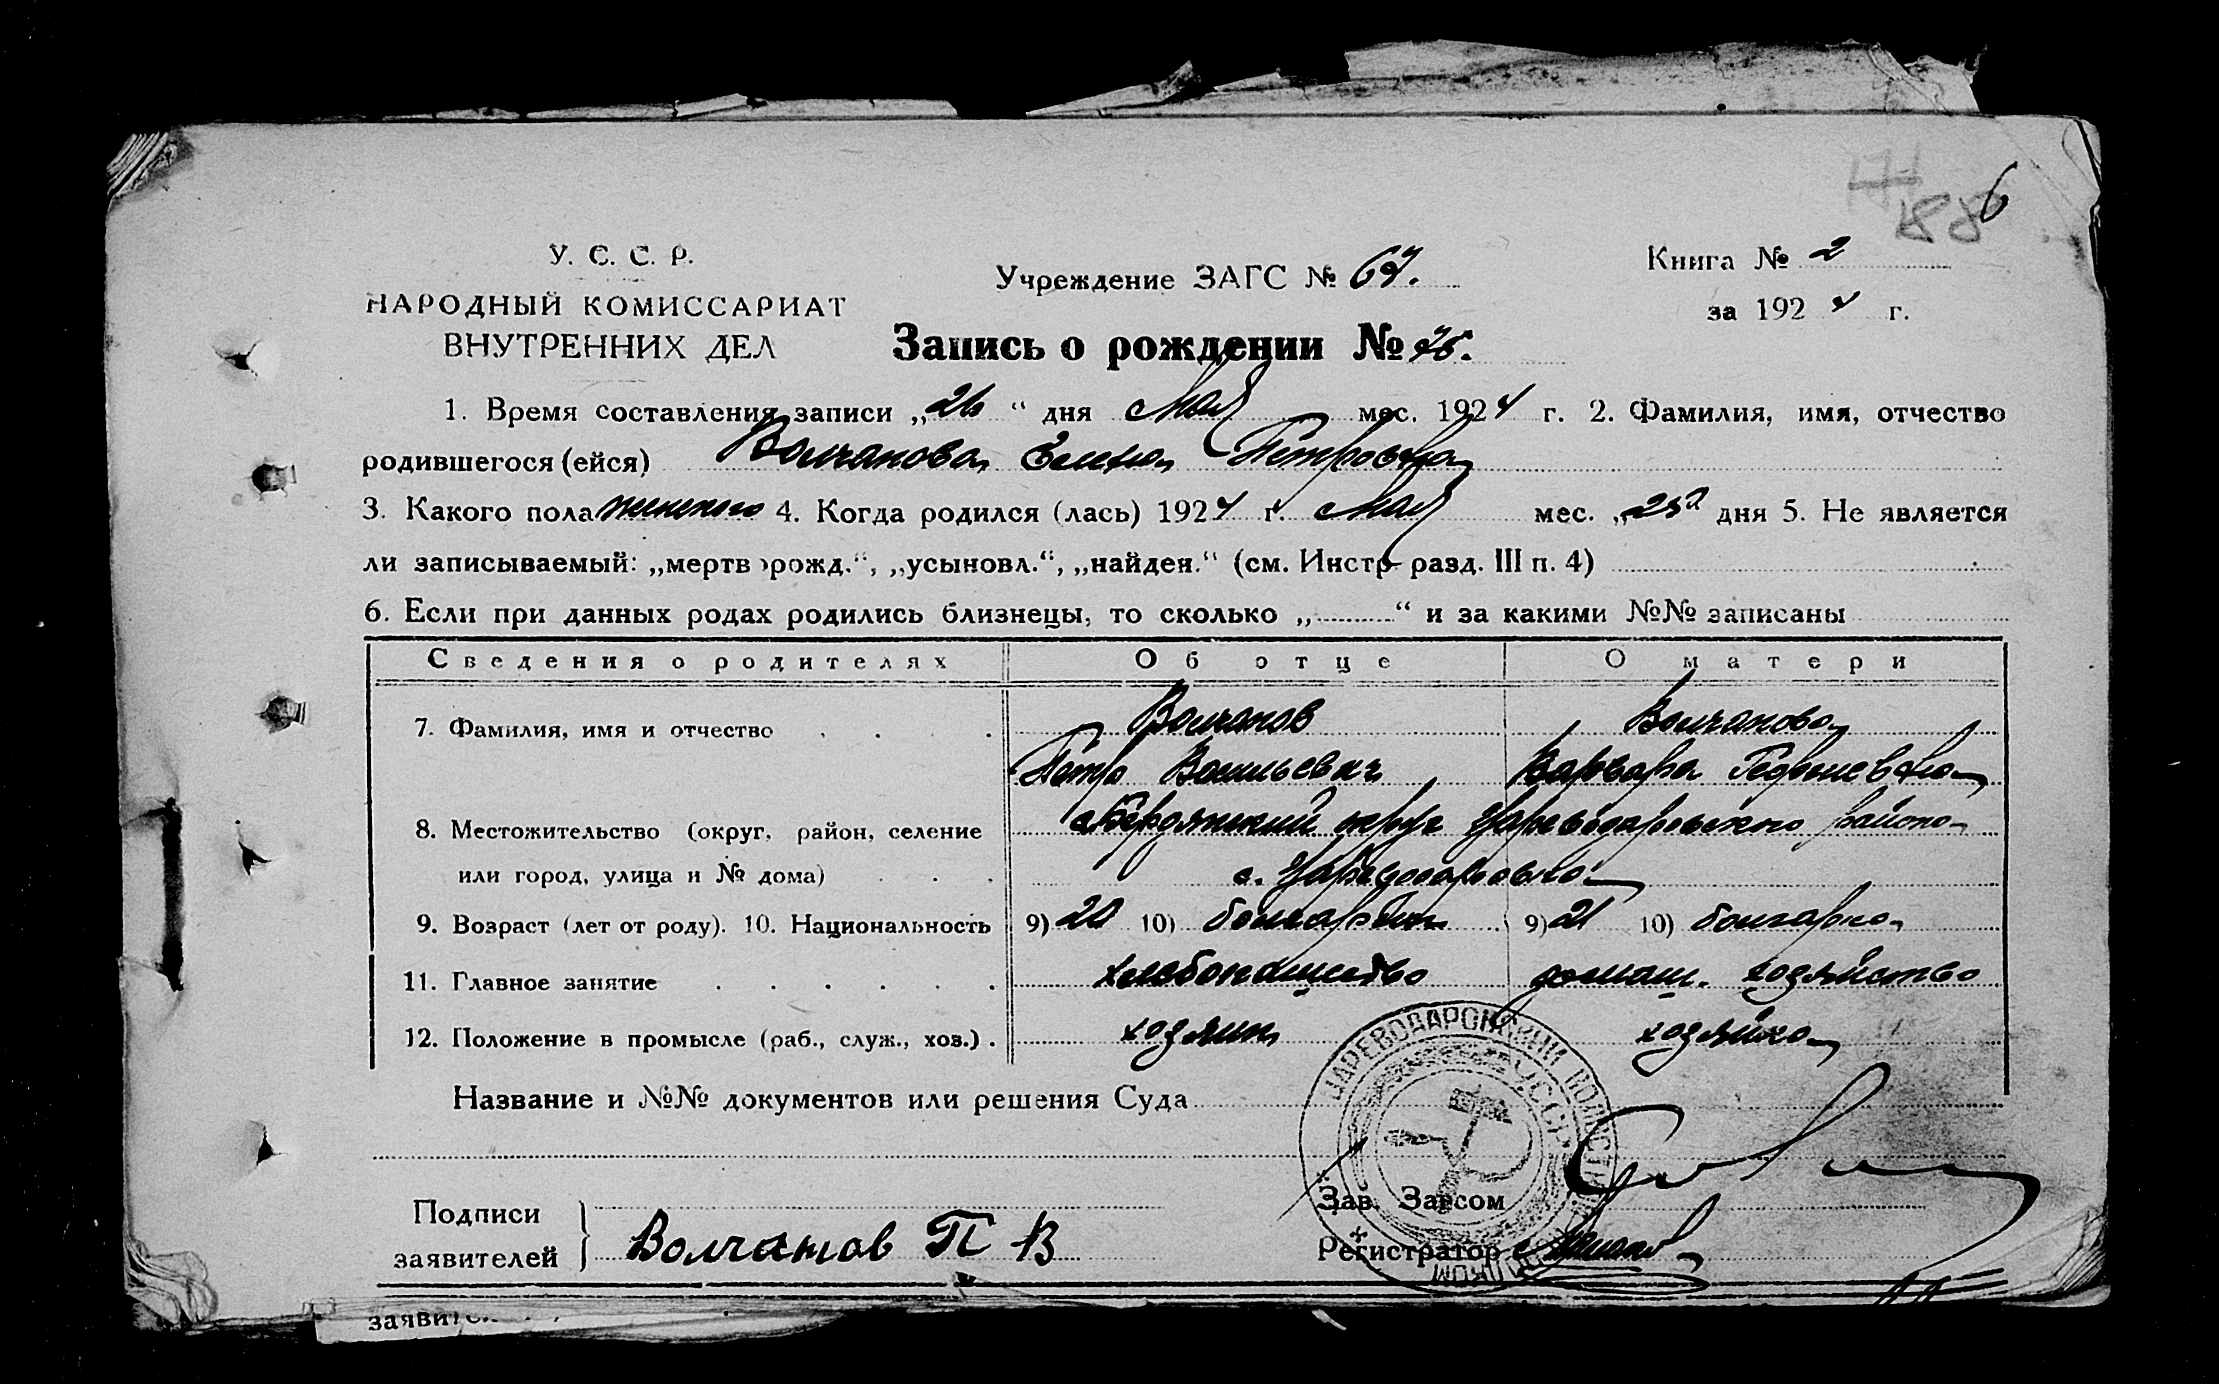 186
У. С. С. Р.
НАРОДНЫЙ КОМИССАРИАТ
ВНУТРЕННИХ ДЕЛ
Учреждение ЗАГС № 67.
Книга № 2
за 1924 г.
Запись о рождении № 75.
1. Время составления записи „26“ дня Мая мес. 1924 г. 2. Фамилия, имя, отчество
родившегося (ейся) Волчанова Елена Петровна
3. Какого пола женского 4. Когда родился (лась) 1924 г. Мая мес. „25“ дня 5. Не является
ли записываемый: „мертворожд.“, „усыновл.“, „найден.“ (см. Инстр. разд. III п. 4)
6. Если при данных родах родились близнецы, то сколько „ “ и за какими №№ записаны
Сведения о родителях Об отце О матери
7. Фамилия, имя и отчество Волчанов Волчанова
Петр Васильевич Варвара Георгиевна
8. Местожительство (округ, район, селение Бердянский округ Цареводаровского района
или город, улица и № дома) с. Цареводаровка
9. Возраст (лет от роду). 10. Национальность 9) 20 10) болгарин 9) 21 10) болгарка
11. Главное занятие хлебопашество домаш. хозяйство
12. Положение в промысле (раб., служ., хоз.) хозяин хозяйка
Название и №№ документов или решения Суда
ЦАРЕВОДАРОВСКИЙ УССР
Зав. Загсом
Подписи
заявителей Волчанов П В
Регистратор